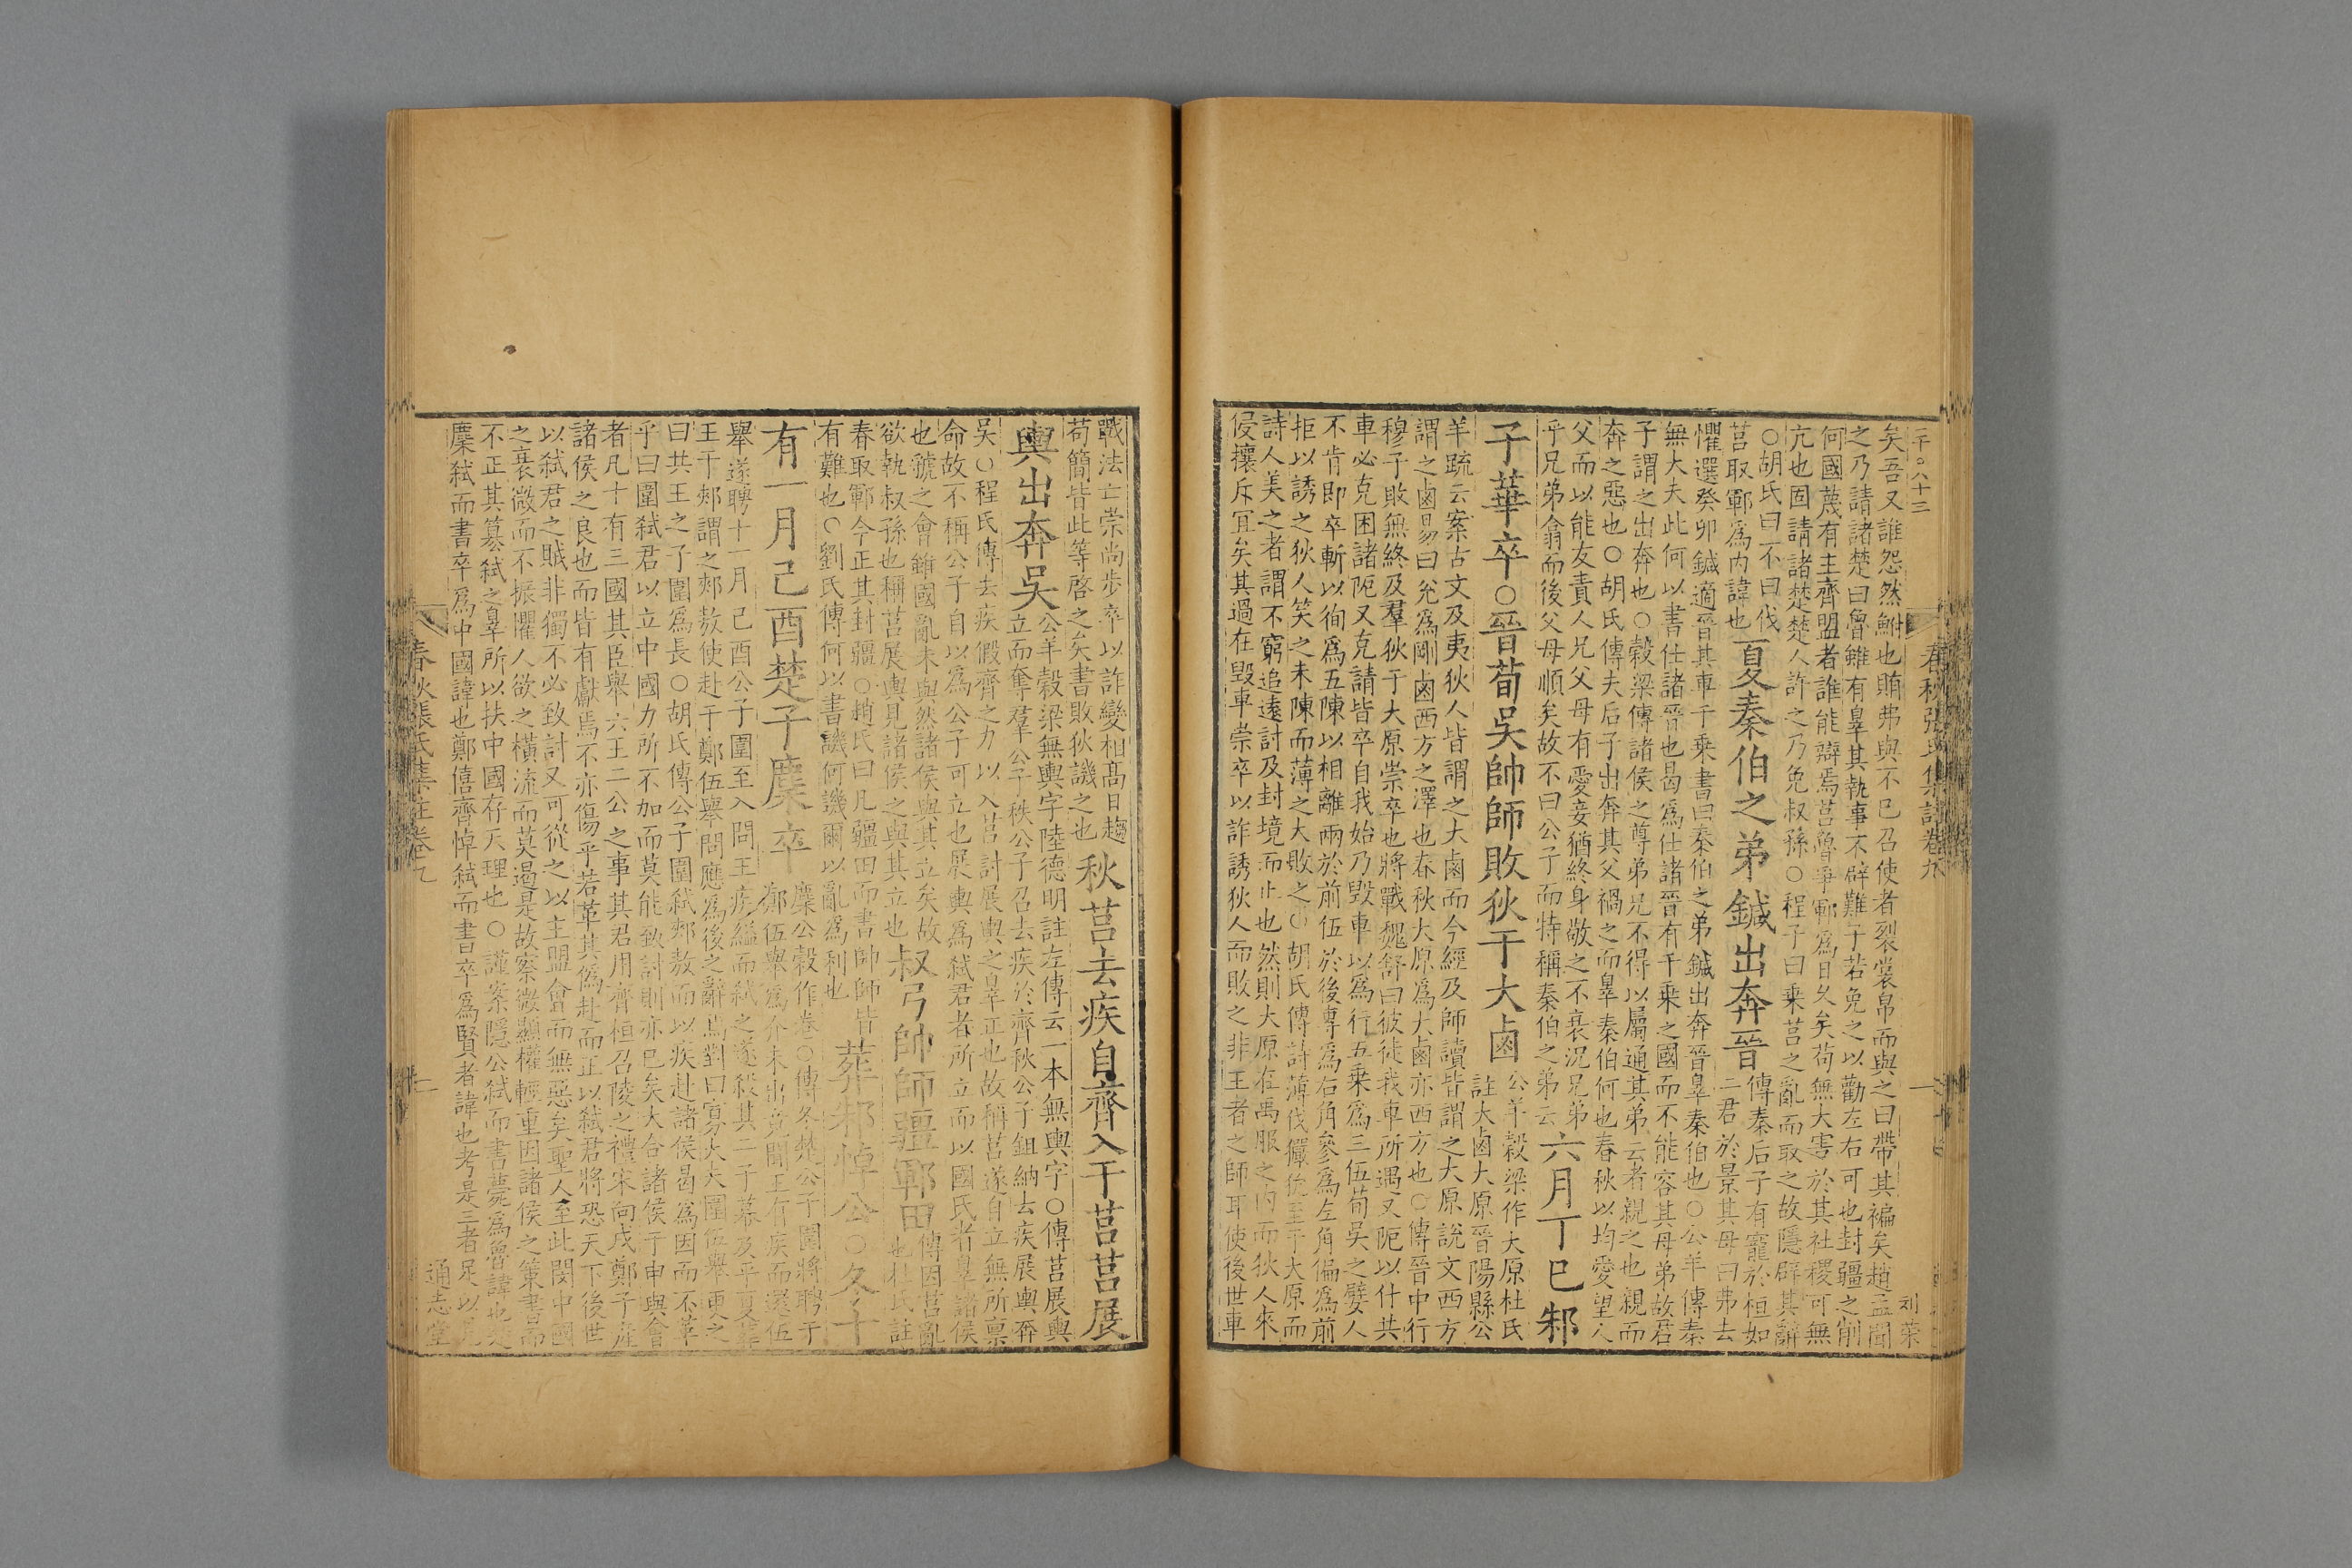 二千〇八十三
春秋張氏集註卷九
刘荣
矣吾又誰怨然鮒也賄弗與不已召使者裂裳帛而與之曰帶其褊矣趙孟聞
之乃請諸楚曰魯雖有辠其執事不辟難子若免之以勸左右可也封疆之削
何國蔑有主齊盟者誰能辯焉莒魯爭鄆爲日久矣苟無大害於其社稷可無
亢也固請諸楚楚人許之乃免叔孫○程子曰乗莒之亂而取之故隱辟其辭
○胡氏曰不曰伐
莒取鄆爲内諱也
夏秦伯之弟鍼出奔晉
傳秦后子有寵於桓如
二君於景其母曰弗去
懼選癸卯鍼適晉其車千乗書曰秦伯之弟鍼出奔晉辠秦伯也○公羊傳秦
無大夫此何以書仕諸晉也曷爲仕諸晉有千乗之國而不能容其母弟故君
子謂之出奔也○穀梁傳諸侯之尊弟兄不得以屬通其弟云者親之也親而
奔之惡也○胡氏傳夫后子出奔其父禍之而辠秦伯何也春秋以均愛望人
父而以能友責人兄父母有愛妾猶終身敬之不衰況兄弟
乎兄弟翕而後父母順矣故不曰公子而特稱秦伯之弟云
六月丁巳邾
子華卒○晉荀吳帥師敗狄于大鹵
公羊穀梁作大原杜氏
註大鹵大原晉陽縣公
羊疏云案古文及夷狄人皆謂之大鹵而今經及師讀皆謂之大原說文西方
謂之鹵易曰兊爲剛鹵西方之澤也春秋大原爲大鹵亦西方也○傳晉中行
穆子敗無終及羣狄于大原崇卒也將戰魏舒曰彼徒我車所遇又阨以什共
車必克困諸阨又克請皆卒自我始乃毀車以爲行五乗爲三伍荀吳之嬖人
不肯即卒斬以徇爲五陳以相離兩於前伍於後專爲右角參爲左角偏爲前
拒以誘之狄人笑之未陳而薄之大敗之○胡氏傳詩薄伐玁狁至于大原而
詩人美之者謂不窮追遠討及封境而止也然則大原在禹服之内而狄人來
侵攘斥宜矣其過在毀車崇卒以詐誘狄人而敗之非王者之師耳使後世車
戰法亡崇尚步卒以詐變相髙日趨
苟簡皆此等啓之矣書敗狄譏之也
秋莒去疾自齊入于莒莒展
輿出奔吳
公羊穀梁無輿字陸德明註左傳云一本無輿字○傳莒展輿
立而奪羣公子秩公子召去疾於齊秋公子鉏納去疾展輿奔
吳○程氏傳去疾假齊之力以入莒討展輿之辠正也故稱莒遂自立無所稟
命故不稱公子自以爲公子可立也展輿爲弑君者所立而以國氏者辠諸侯
也虢之會雖國亂未與然諸侯與其立矣故
欲執叔孫也稱莒展輿見諸侯之與其立也
叔弓帥師疆鄆田
傳因莒亂
也杜氏註
春取鄆今正其封疆○趙氏曰凡疆田而書帥師皆
有難也○劉氏傳何以書譏何譏爾以亂爲利也
葬邾悼公○冬十
有一月己酉楚子麇卒
麇公穀作卷○傳冬楚公子圍將聘于
鄭伍舉爲介未出竟聞王有疾而還伍
舉遂聘十一月己酉公子圍至入問王疾縊而弑之遂殺其二子幕及平夏葬
王于郟謂之郟敖使赴于鄭伍舉問應爲後之辭焉對曰寡大夫圍伍舉更之
曰共王之子圍爲長○胡氏傳公子圍弑郟敖而以疾赴諸侯曷爲因而不革
乎曰圍弑君以立中國力所不加而莫能致討則亦已矣大合諸侯于申與會
者凡十有三國其臣舉六王二公之事其君用齊桓召陵之禮宋向戌鄭子産
諸侯之良也而皆有獻焉不亦傷乎若革其僞赴而正以弑君將恐天下後世
以弑君之賊非獨不必致討又可從之以主盟會而無惡矣聖人至此閔中國
之衰微而不振懼人欲之橫流而莫遏是故察微顯權輕重因諸侯之策書而
不正其篡弑之辠所以扶中國存天理也○謹案隱公弑而書薨爲魯諱也
麇弑而書卒爲中國諱也鄭僖齊悼弑而書卒爲賢者諱也考是三者足以
春秋張氏集註卷九
十一
通志堂